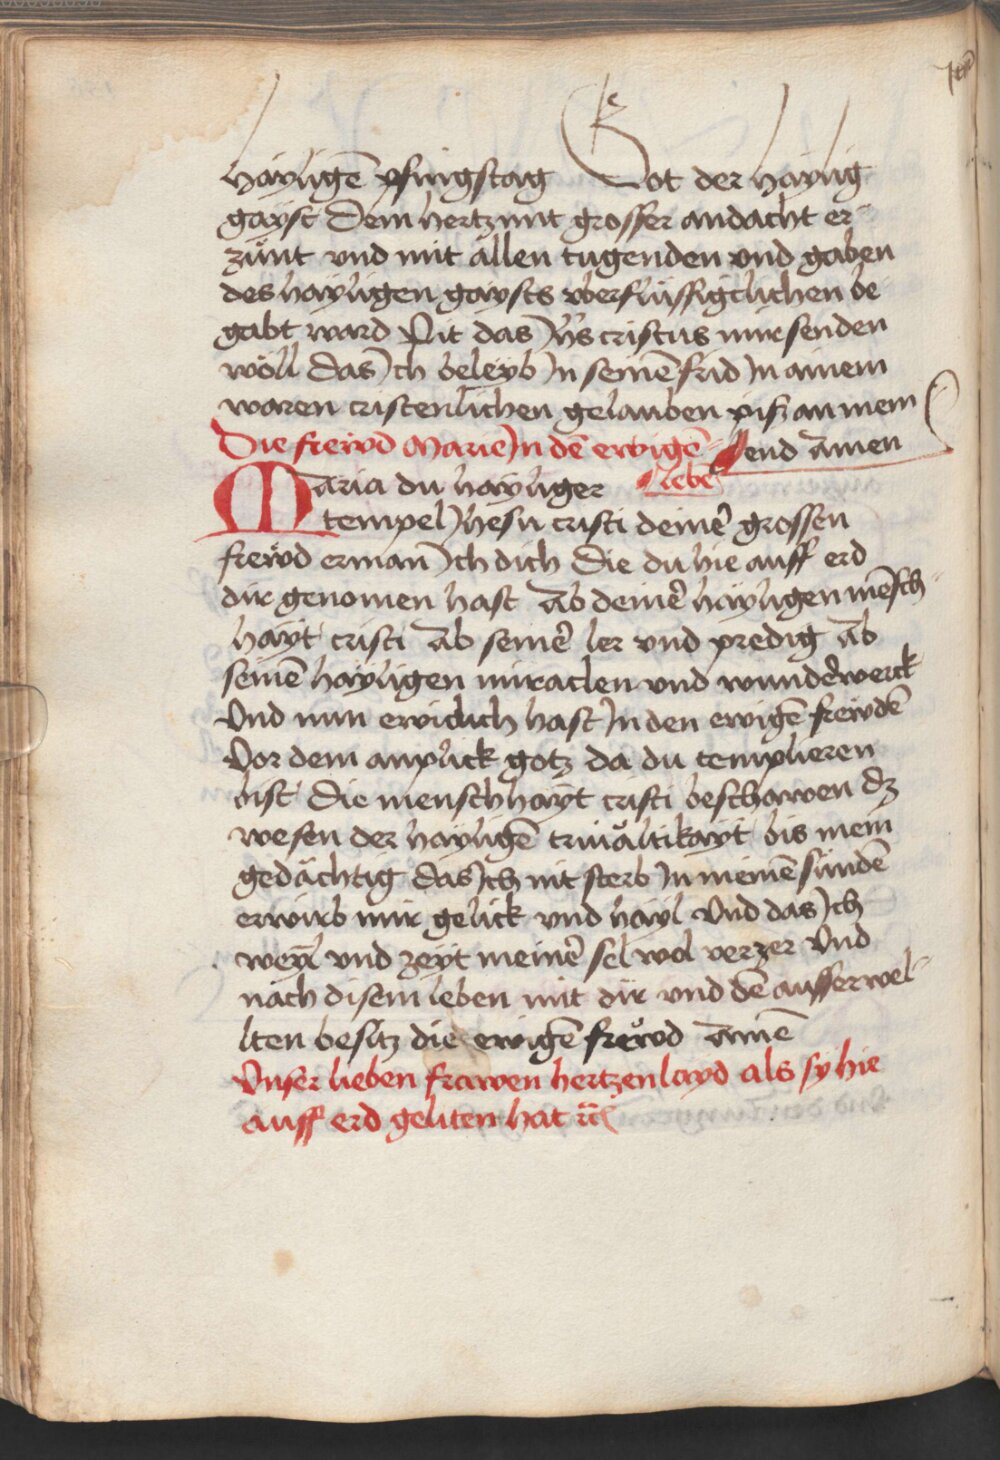 hayligē pfingstag Got der haylig
gayst Dein hertz mit grosser andacht er-
zünt vnd mit allen tugenden vnd gaben
des hayligen gaysts vberflüssigclichen be
gabt ward Pit das Jhs cristus mir senden
wöll das Jch beleyb Jn seinē frid Jn ainem
waren cristenlichen gelauben piß an mein
end Amen
Die frewd Marie Jn dē ewigē
lebē
Maria du hayliger
tempel Jhesu cristi deinē grossen
frewd erman Jch dich Die du hie auff erd
dir genomen hast Ab deinē hayligen mēsch-
hayt cristi Ab seinē ler vnd predig Ab
seinē hayligen miraclen vnd wundēwerck
Vnd nun ewiclich hast Jn den ewigē frewdē
Vor dem anplick gotz da du templieren
bist Die menschhayt cristi beschawen dz
wesen der hayligē triualtikayt bis mein
gedächtig das Jch nit sterb Jn meinē sündē
erwirb mir gelick vnd hayl Vnd das Jch
weyl vnd zeyt meinē sel wol verzer Vnd
nach disem leben mit dir vnd dē ausserwel-
lten besitz die ewigē frewd Amē
Vnser lieben frawen hertzenlayd als sy hie
auff erd geliten hat rc̄